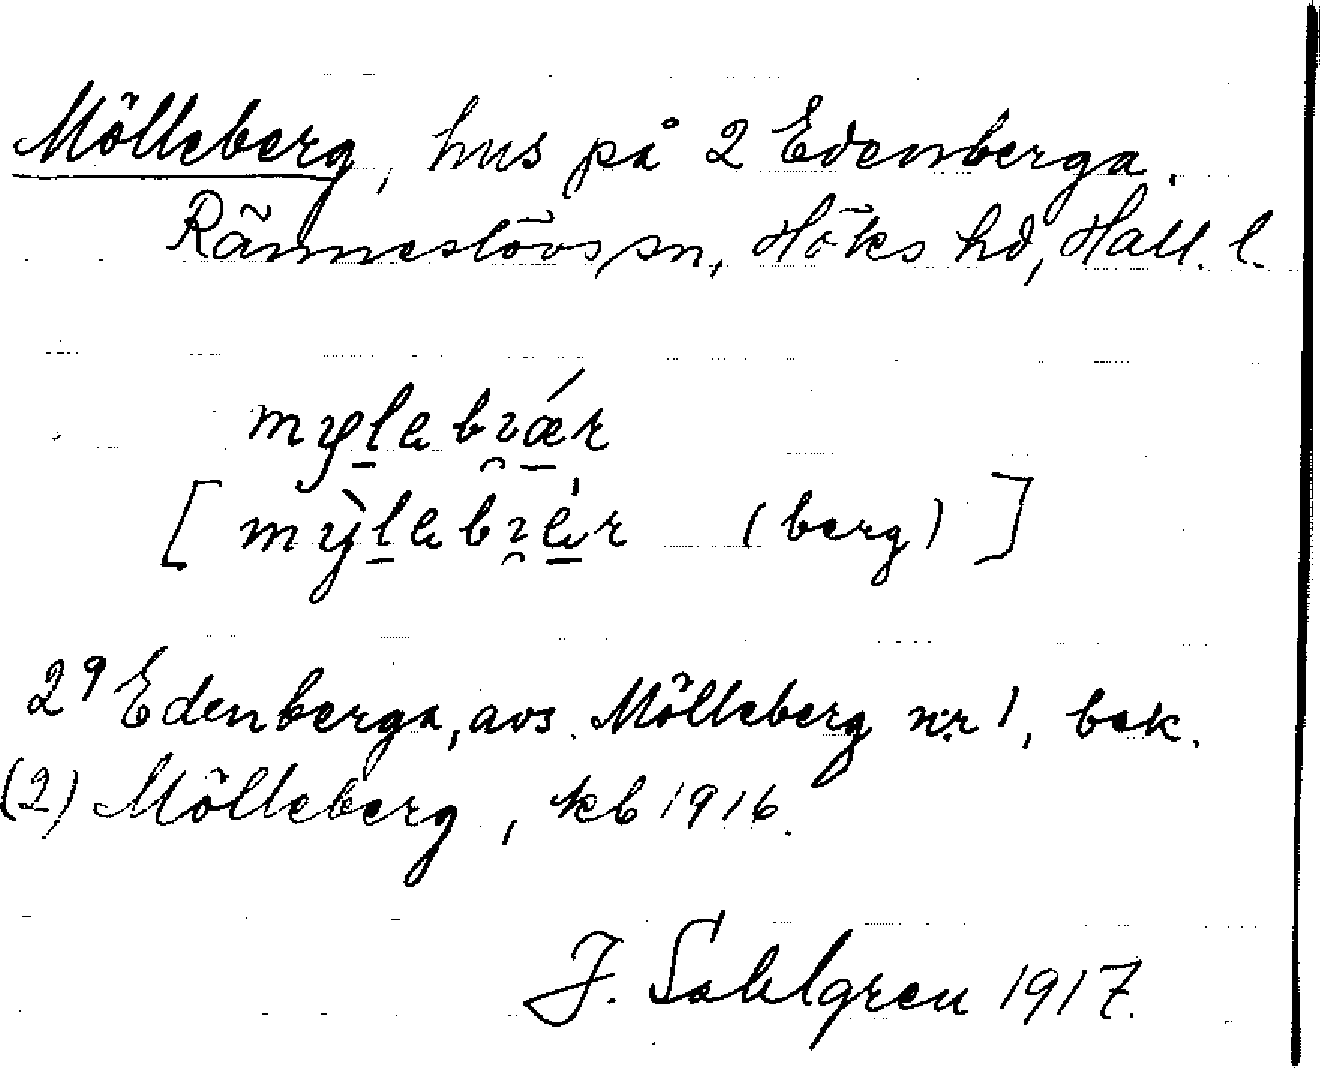 Mölleberg, hus på 2 Edenberga.
Ränneslövs sn, Höks hd, Hall. l.
mylebɿǽr
[ mỳlebɿér (berg) ]
2⁹ Edenberga, avs. Mölleberg nr 1, bek.
(2) Mölleberg, kb 1916.
J. Sahlgren 1917.